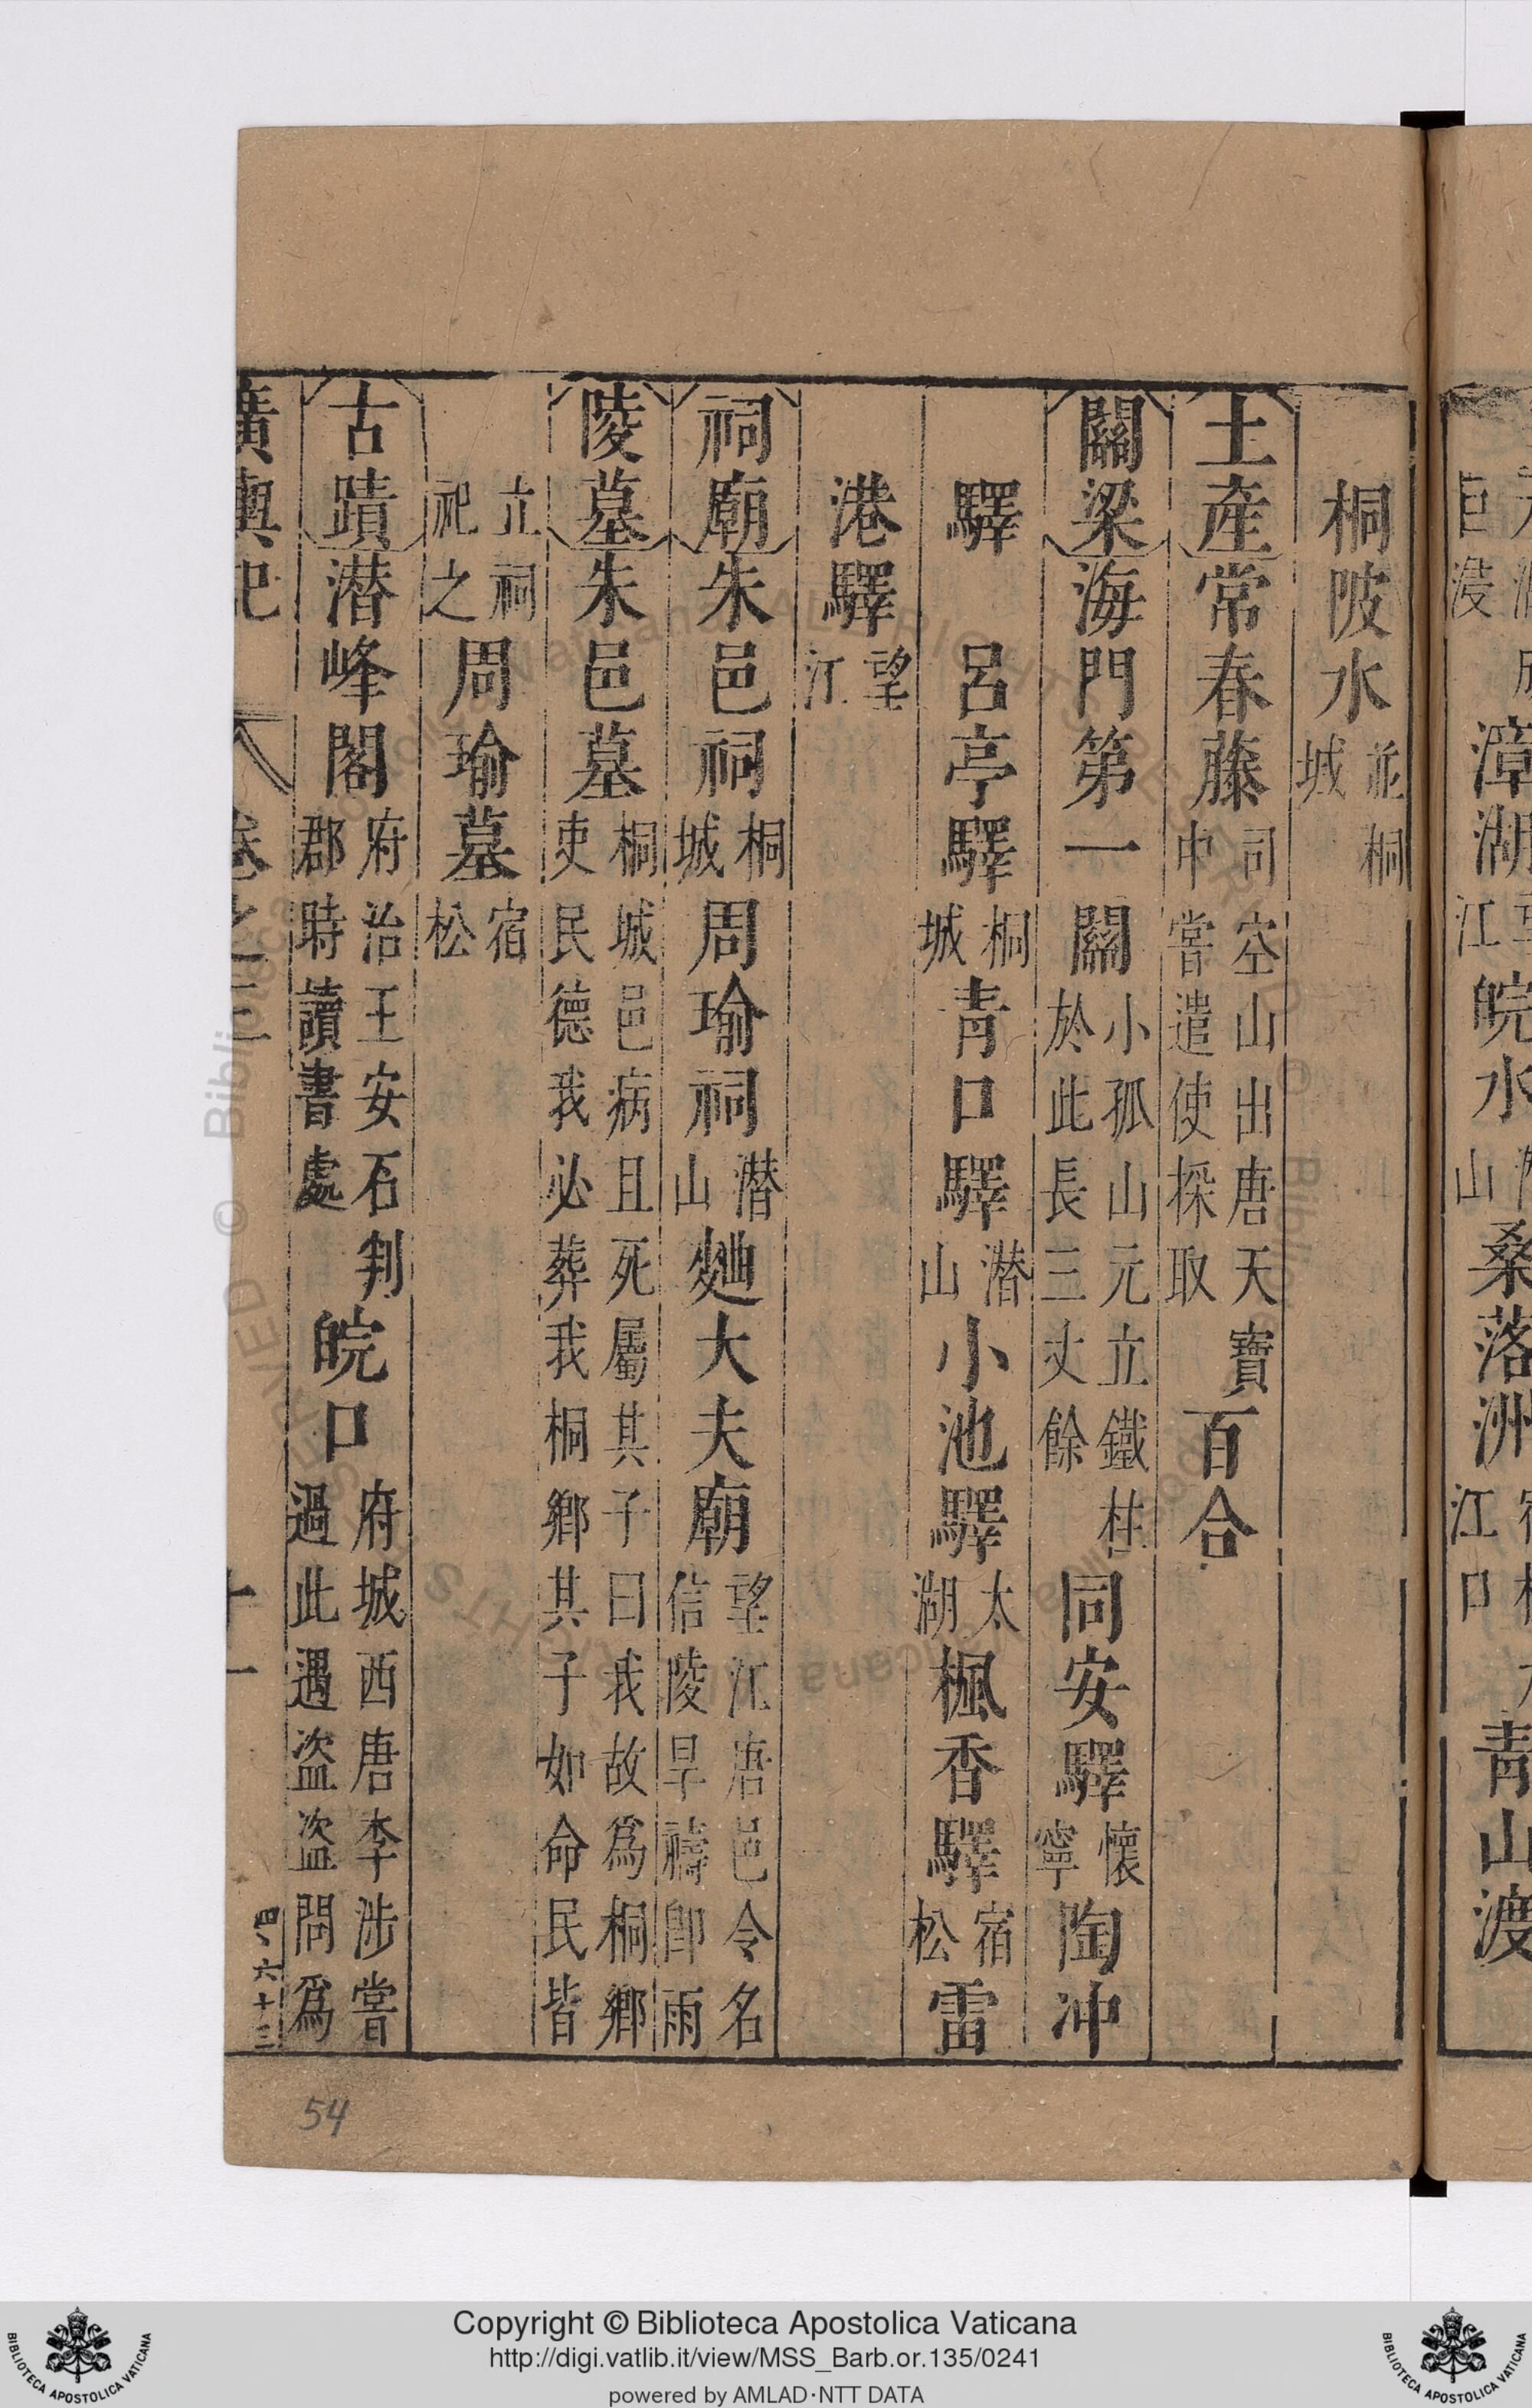 巨浸 漳湖 江 皖水 山 桑落洲 江口 青山渡
桐陂水 並桐城
土産 常春藤 司空山出唐天寶中嘗遣使採取 百合
關梁 海門第一關 小孤山元立鐵柱於此長三丈餘 同安驛 懷寧 陶冲
驛 呂亭驛 桐城 青口驛 潜山 小池驛 太湖 楓香驛 宿松 雷
港驛 望江
祠廟 朱邑祠 桐城 周瑜祠 潜山 麯大夫廟 望江唐邑令名信陵旱禱卽雨
陵墓 朱邑墓 桐城邑病且死屬其子曰我故爲桐鄉吏民德我必葬我桐鄉其子如命民皆
立祠祀之 周瑜墓 宿松
古蹟 潜峰閣 府治王安石判郡時讀書處 皖口 府城西唐李涉嘗過此遇盗盗問爲
廣輿記 卷之三 十一
四 六十三
54
Copyright © Biblioteca Apostolica Vaticana
http://digi.vatlib.it/view/MSS_Barb.or.135/0241
powered by AMLAD·NTT DATA
BIBLIOTECA APOSTOLICA VATICANA
BIBLIOTECA APOSTOLICA VATICANA